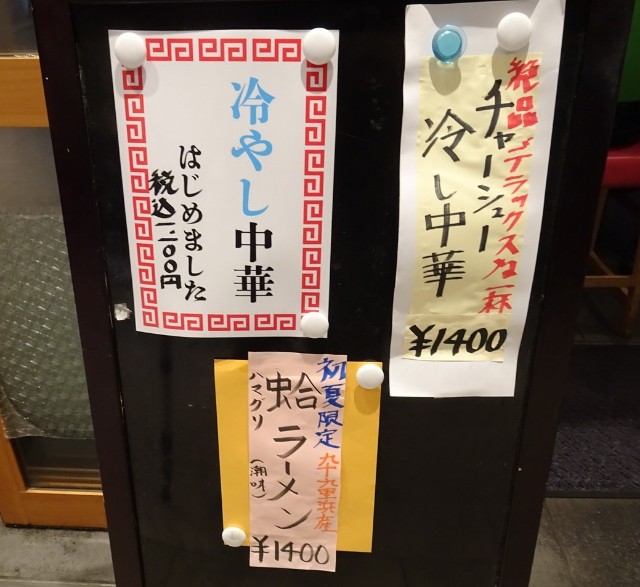 冷やし中華
はじめました
税込一、一〇〇円
絶品デラックスな一杯
チャーシュー
冷し中華
¥1400
初夏限定
九十九里浜産
蛤ラーメン
ハマグリ
(潮味)
¥1400